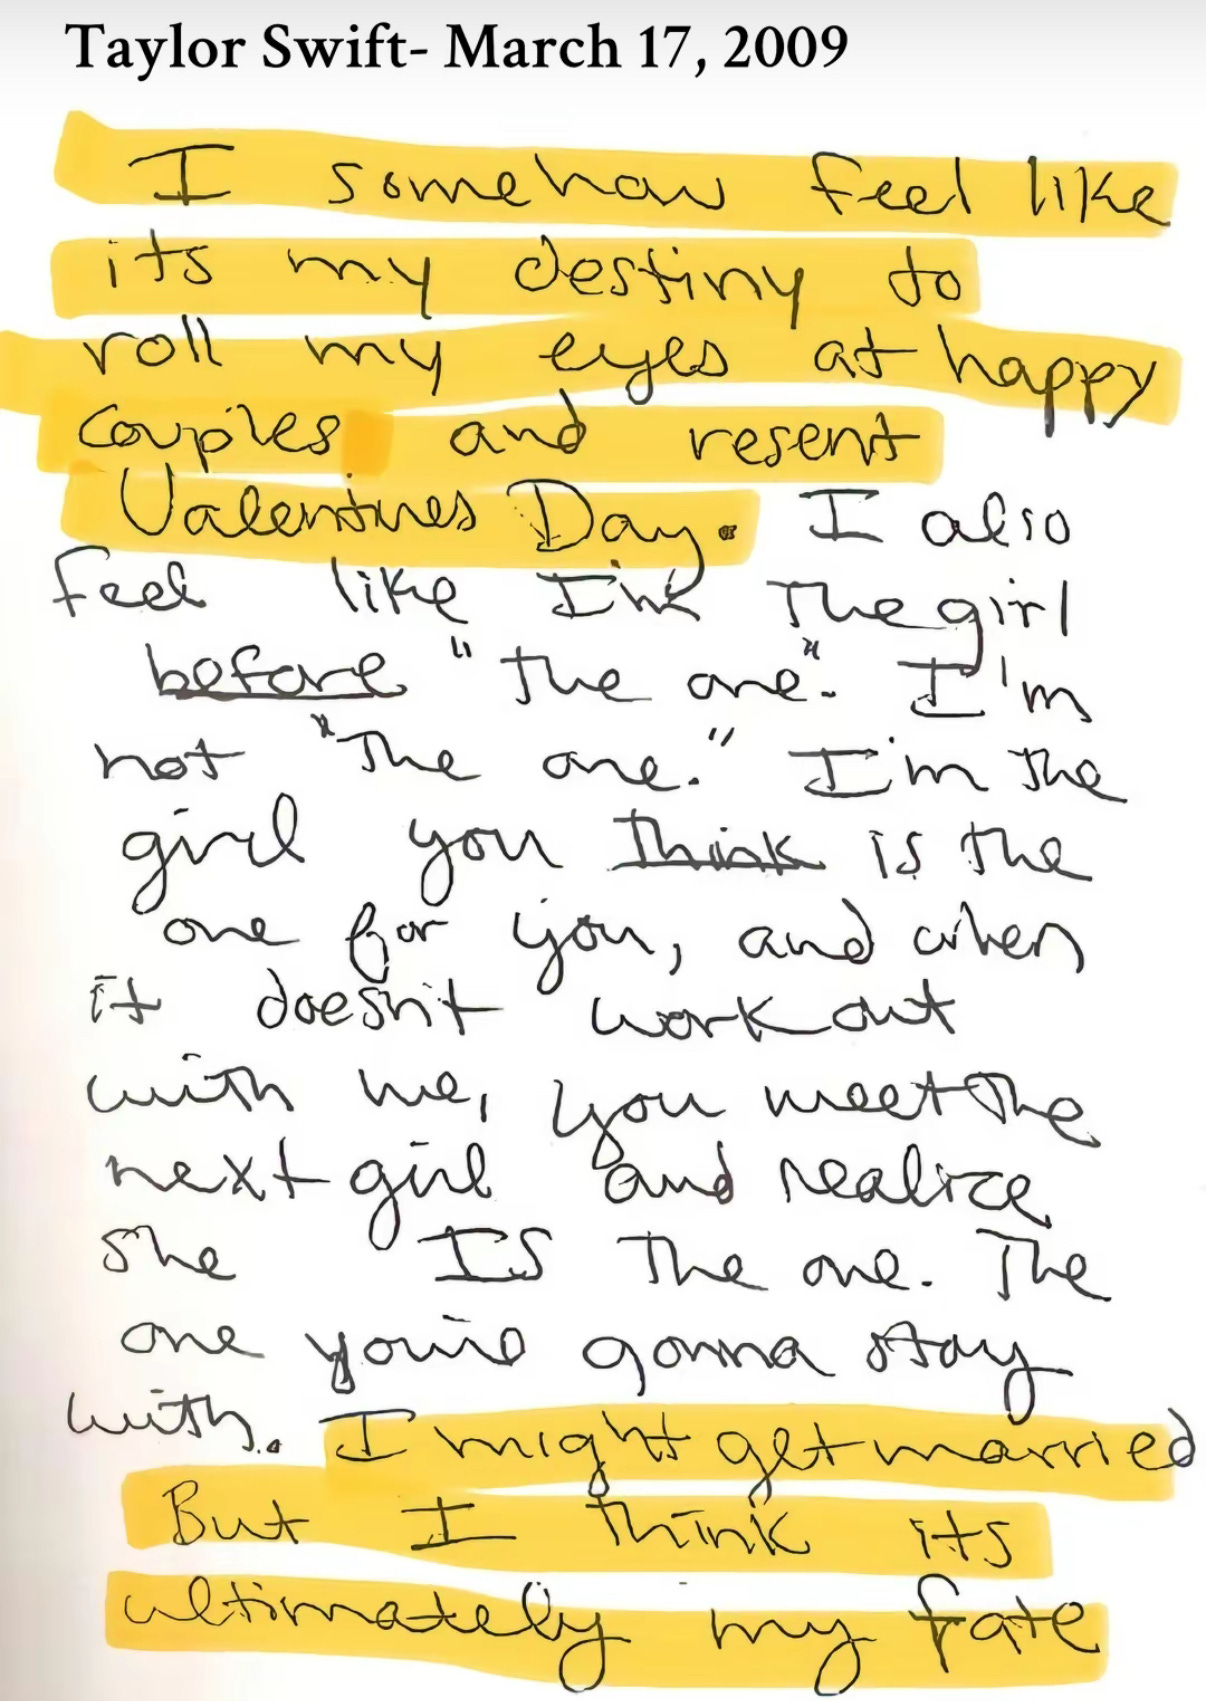 Taylor Swift- March 17, 2009
I somehow feel like
its my destiny to
roll my eyes at happy
couples and resent
Valentines Day. I also
feel like I'm the girl
before "the one". I'm
not "the one." I'm the
girl you think is the
one for you, and when
it doesn't work out
with me, you meet the
next girl and realize
she IS the one. The
one you're gonna stay
with. I might get married
But I think its
ultimately my fate